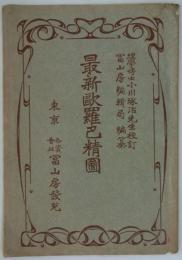 理學博士小川琢治先生校訂
冨山房編輯局編纂
最新歐羅巴精圖
東京
合資
會社
冨山房發兌